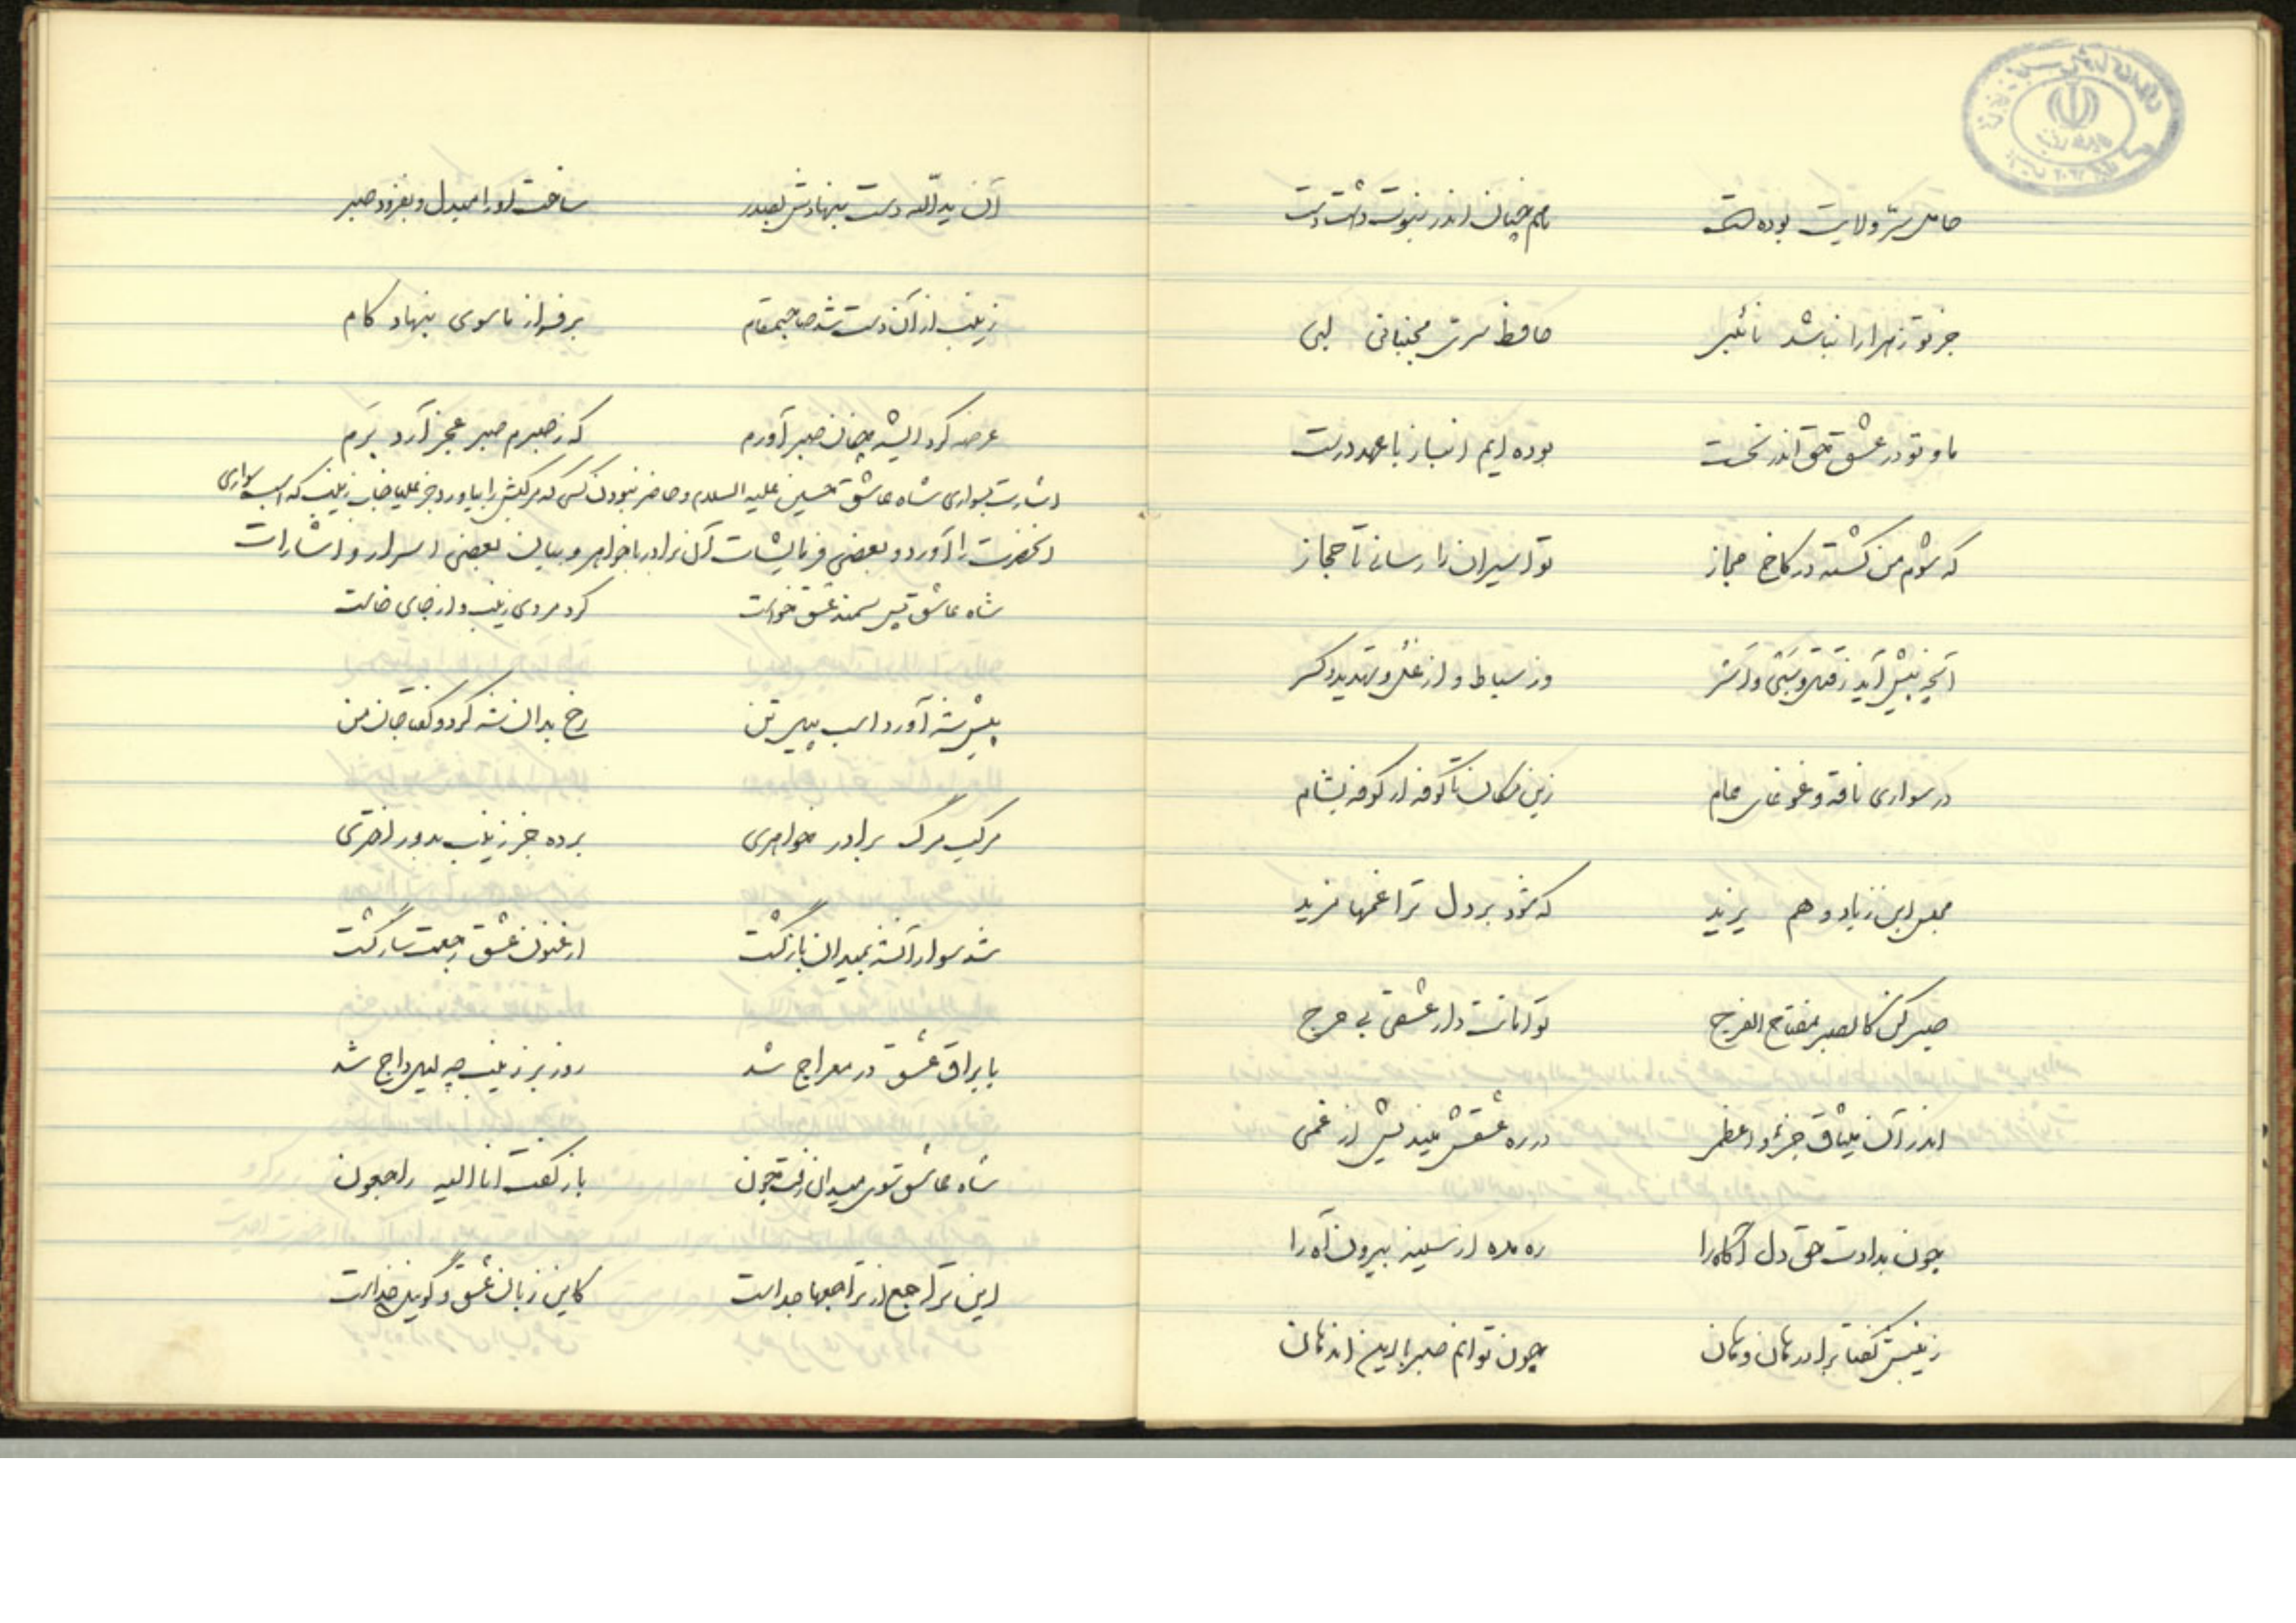 حامل سرّ ولایت بوده است هم چنان اندر نبوت داشت دست
جز تو زهرا را نباشد نائبی حافظ سرش مجتبائی لبی
ما و تو در عشق حق اندر نخست بوده ایم انباز با عهد درست
که شوم من کشته در کاخ مجاز تو اسیران را رسانی تا حجاز
آنچه پیش آید ز قتل و سبی و اسر وز سیاط و از غل و تهدید و کسر
در سواری ناقه و غوغای عام زین مکان تا کوفه از کوفه بشام
مجلس ابن زیاد و هم یزید که شود بر دل ترا غمها مزید
صبر کن کالصبر مفتاح الفرج تو امانت دار عشقی بی حرج
اندر آن میثاق جزء و اعظمی در ره عشقش میندیش از غمی
چون بدادت حق دل آگاه را ره مده از سینه بیرون آه را
زینبش گفتا برادر هان و هان چون توانم صبر با این اندهان
آن ید الله دست بنهادش بصدر ساخت او را مبدل و بفزود صبر
زینب از آن دست شد صاحبمقام بر فراز ماسوی بنهاد گام
عرضه کرد ایشه چنان صبر آورم که ز صبرم صبر عجز آرد برم
اشارت بسواری شاه عاشق حسین علیه السلام و حاضر نبودن کسی که مرکبش را بیاورد جز علیا جناب زینب که اسب سواری
آنحضرت را آورد و بعضی فرمایشات آن برادر با خواهر و بیان بعضی اسرار و اشارات
شاه عاشق پس سمند عشق خواست کرد مردی زینب و از جای خاست
پیش شه آورد اسب پیر تن رخ بدان شه کرد و گفت جان من
مرکب مرگ برادر خواهری برده جز زینب بدور اختری
شد سوار آنشه بمیدان بازگشت ارغنون عشق رجعت ساز گشت
با براق عشق در معراج شد روز بر زینب چه لیل داج شد
شاه عاشق سوی میدان رفت چون باز گفت انا الیه راجعون
این تراجع از تراجعها جداست کاین زبان عشق و گویش خداست